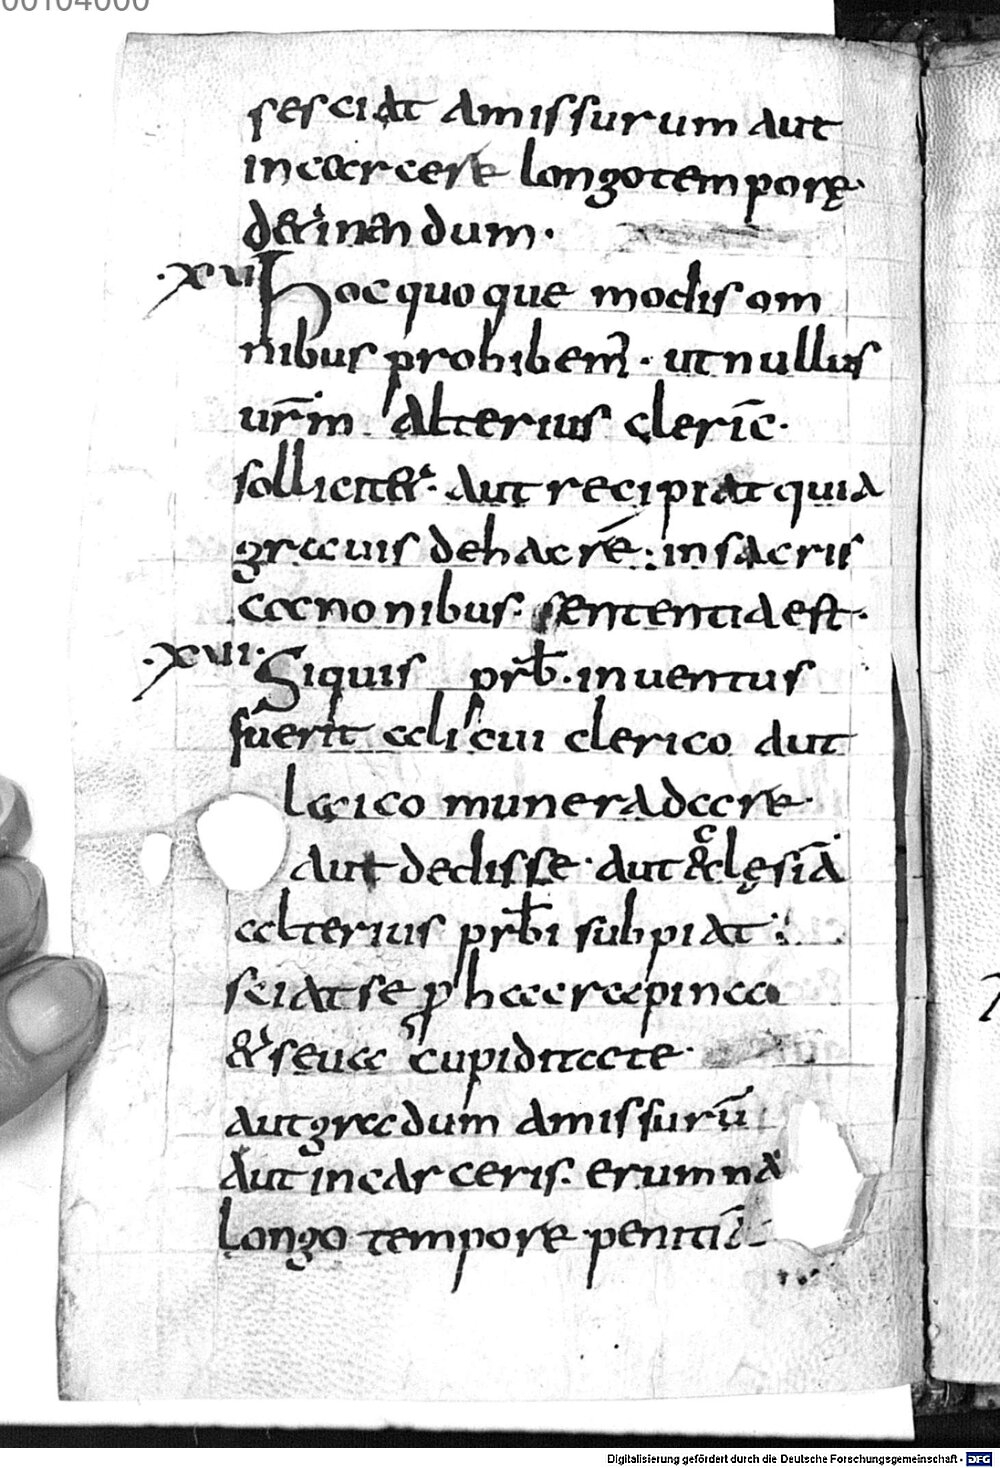 00104000
se sciat amissurum aut
in carcere longo tempore
detinendum.
.XV. Hoc quoque modis om
nibus prohibem̄. ut nullus
urm̄ alterius cleric̄.
sollicitet. aut recipiat quia
gravis de hac rē. in sacris
canonibus. sententia est.
.XVI. Siquis prb̄. inventus
fuerit alicui clerico aut
laico munera dare
aut dedisse. aut ęclęsiā
alterius prb̄i subpiat.
sciat se p hac rapina
et sęva cupiditate.
aut gradum amissurū
aut in carceris. erumna
longo tempore penitī
Digitalisierung gefördert durch die Deutsche Forschungsgemeinschaft - DFG